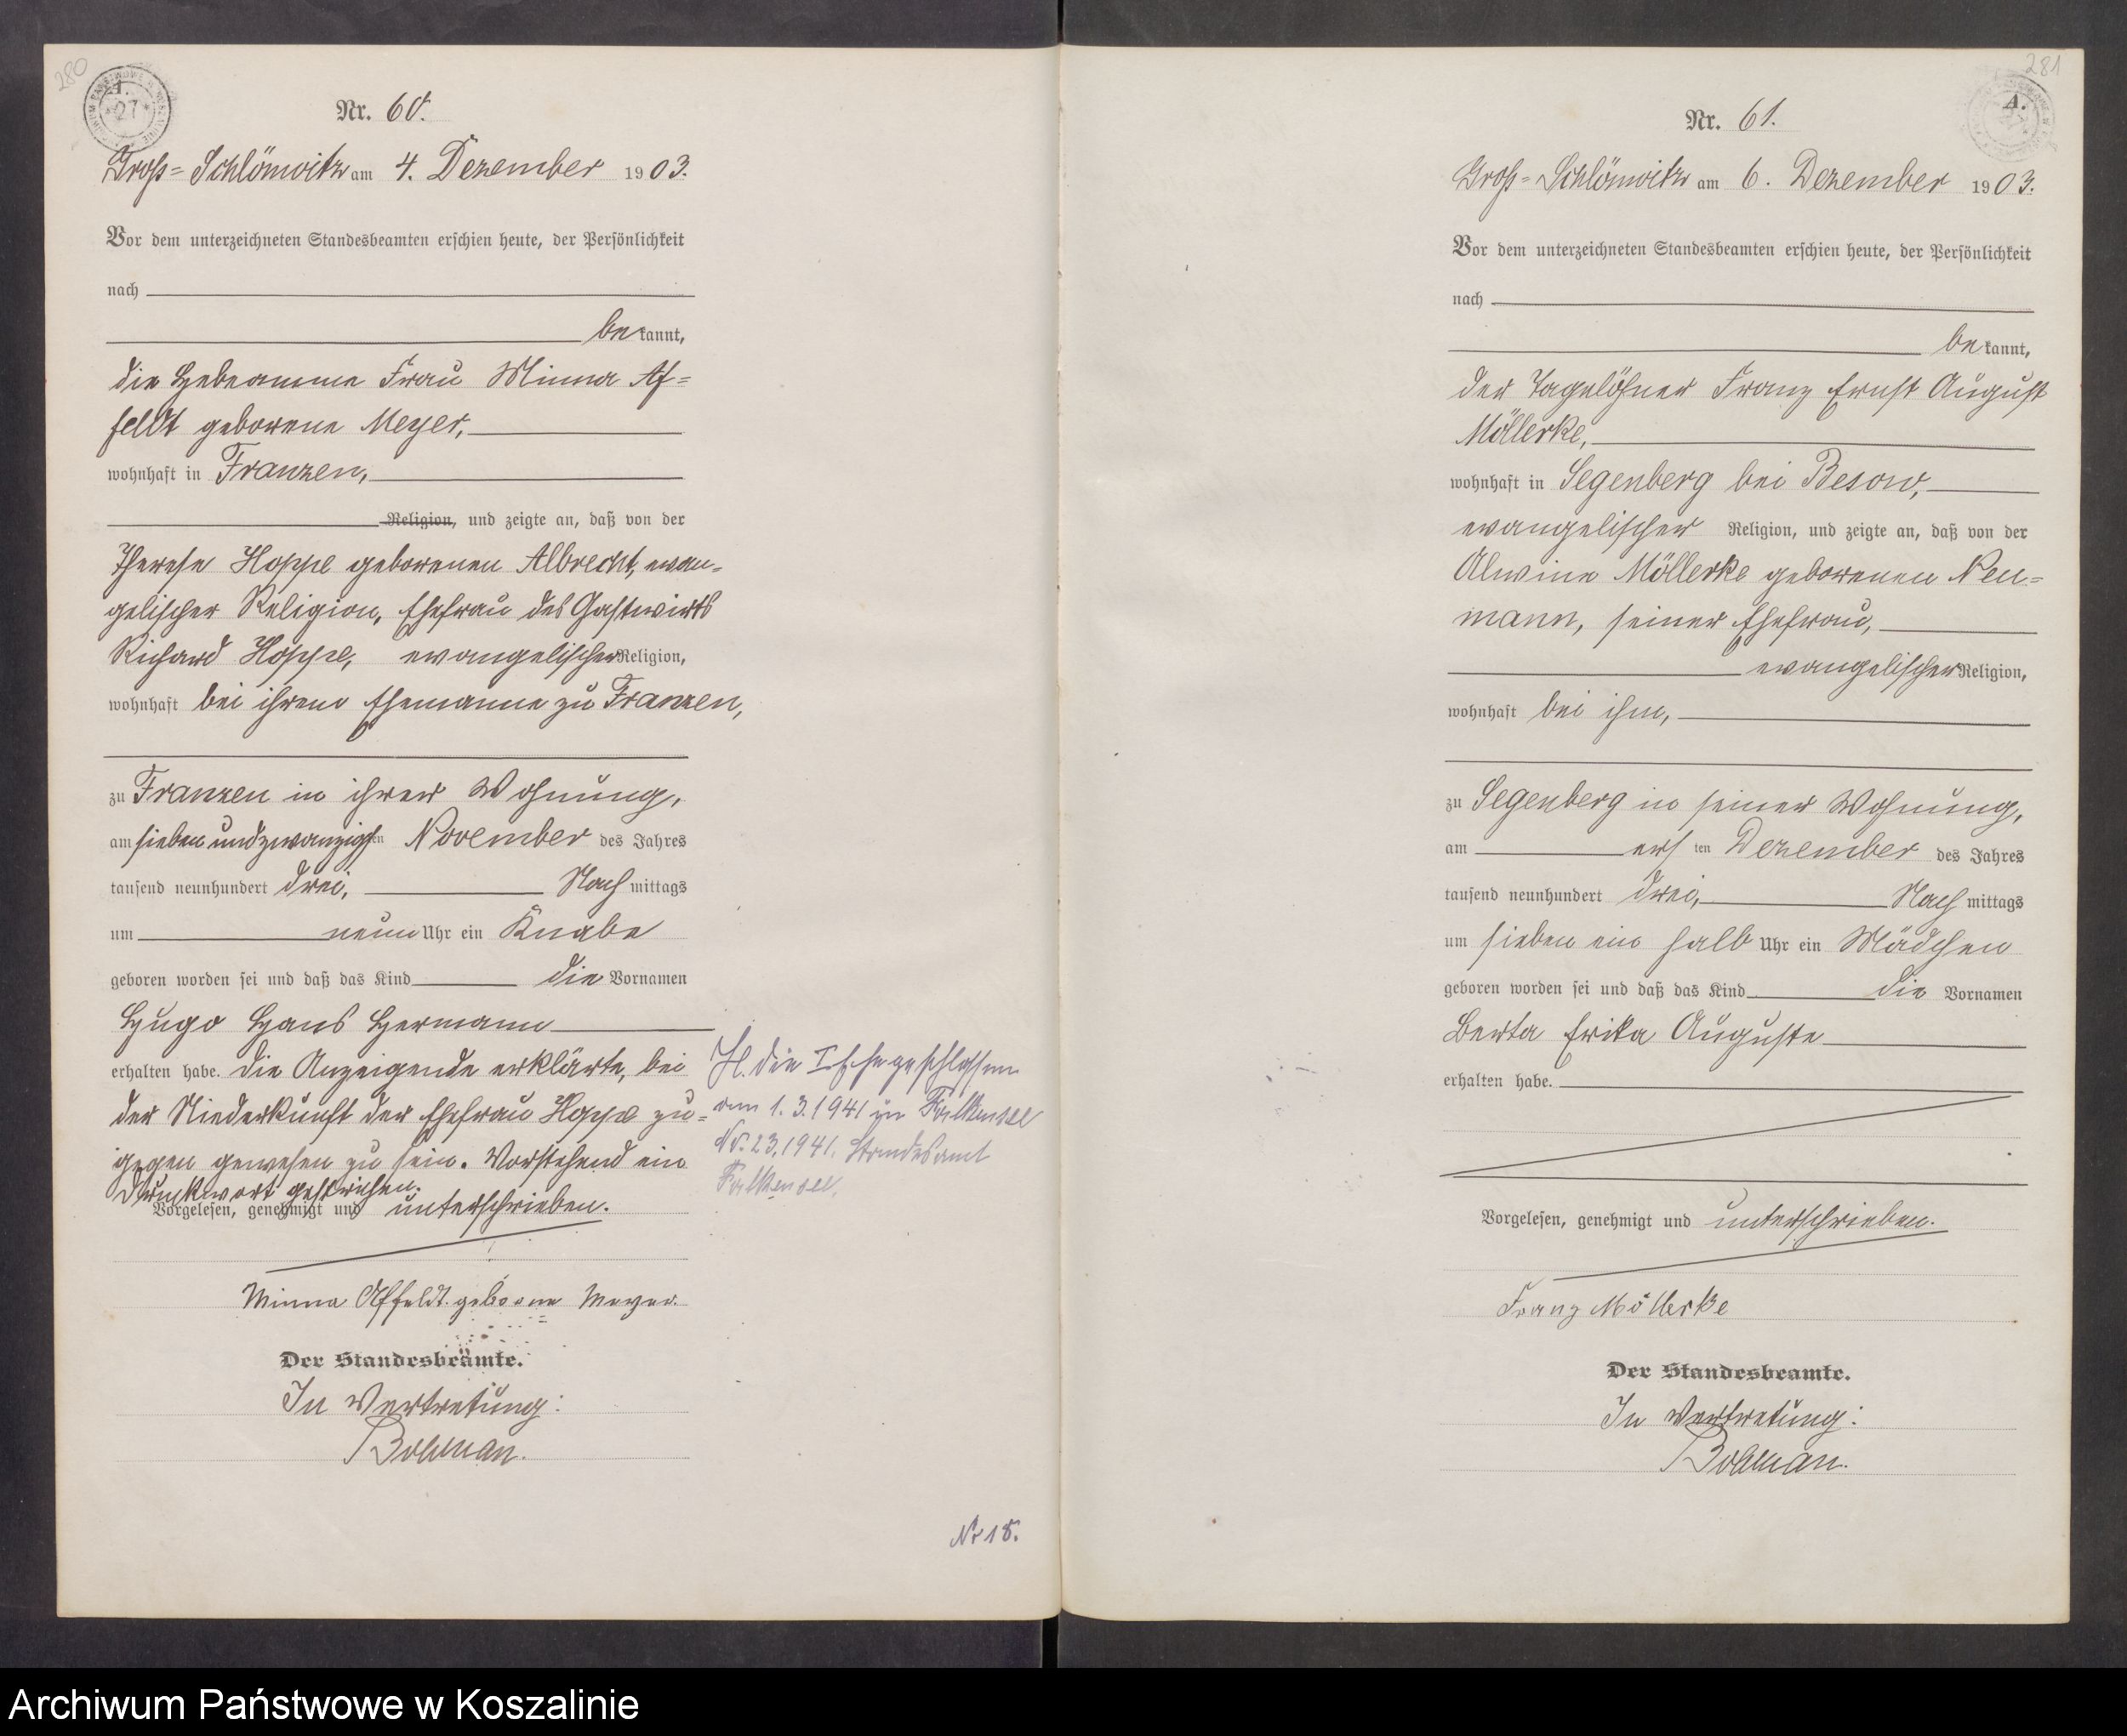 280
A.
27
Nr. 60.
Groß=Schlönwitz am 4. Dezember 1903.
Vor dem unterzeichneten Standesbeamten erschien heute, der Persönlichkeit
nach
bekannt,
die Hebeamme Frau Minna Af=
feldt geborene Meyer,
wohnhaft in Franzen,
Religion, und zeigte an, daß von der
Therese Hoppe geborenen Albrecht, evan=
gelischer Religion, Ehefrau des Gastwirts
Richard Hoppe, evangelischer Religion,
wohnhaft bei ihrem Ehemanne zu Franzen,
zu Franzen in ihrer Wohnung,
am siebenundzwanzigsten November des Jahres
tausend neunhundert drei, Nachmittags
um neun Uhr ein Knabe
geboren worden sei und daß das Kind die Vornamen
Hugo Hans Hermann
erhalten habe. Die Anzeigende erklärte, bei
der Niederkunft der Ehefrau Hoppe zu=
gegen gewesen zu sein. Vorstehend ein
Druckwort gestrichen.
Vorgelesen, genehmigt und unterschrieben.
Minna Affeldt geborne Meyer.
Der Standesbeamte.
In Vertretung:
H. die I Ehe geschlossen
am 1.3.1941 in Falkensee
Nr. 23.1941. Standesamt
Falkensee.
Nr 18.
281
A.
Nr. 61.
Groß=Schlönwitz am 6. Dezember 1903.
Vor dem unterzeichneten Standesbeamten erschien heute, der Persönlichkeit
nach
bekannt,
der Tagelöhner Franz Ernst August
Möllerke,
wohnhaft in Segenberg bei Besow,
evangelischer Religion, und zeigte an, daß von der
Alwine Möllerke geborenen Neu=
mann, seiner Ehefrau,
evangelischer Religion,
wohnhaft bei ihm,
zu Segenberg in seiner Wohnung,
am ersten Dezember des Jahres
tausend neunhundert drei, Nachmittags
um sieben ein halb Uhr ein Mädchen
geboren worden sei und daß das Kind die Vornamen
Berta Erika Auguste
erhalten habe.
Vorgelesen, genehmigt und unterschrieben.
Franz Möllerke
Der Standesbeamte.
In Vertretung:
Archiwum Państwowe w Koszalinie